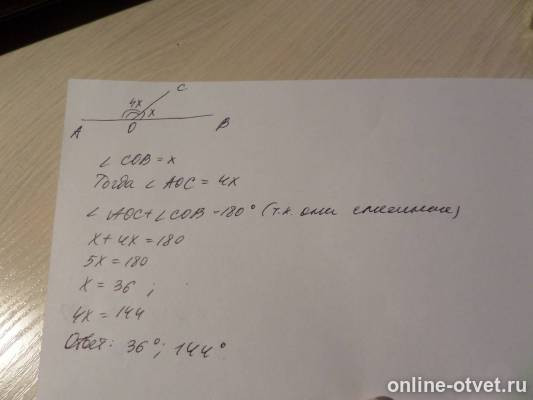 C
4x
x
A
O
B
∠ COB = x
Тогда ∠ AOC = 4x
∠ AOC + ∠ COB = 180° (т.к. они смежные)
x + 4x = 180
5x = 180
x = 36 ;
4x = 144
Ответ: 36°; 144°
online-otvet.ru